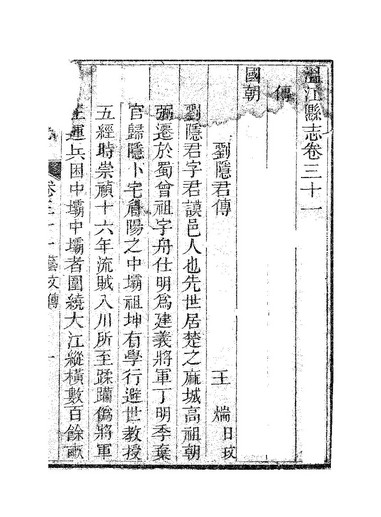 溫江縣志卷三十一
傳
國朝
劉隱君傳
王煓日玫
劉隱君字君謨邑人也先世居楚之麻城高祖朝
弼遷於蜀曾祖字舟仕明為建義將軍丁明季棄
官歸隱卜宅膚陽之中壩祖坤有學行避世教授
五經時崇禎十六年流賊入川所至蹂躪偽將軍
運兵困中壩中壩者圍繞大江縱橫數百餘畝
卷三十一藝文傳 一